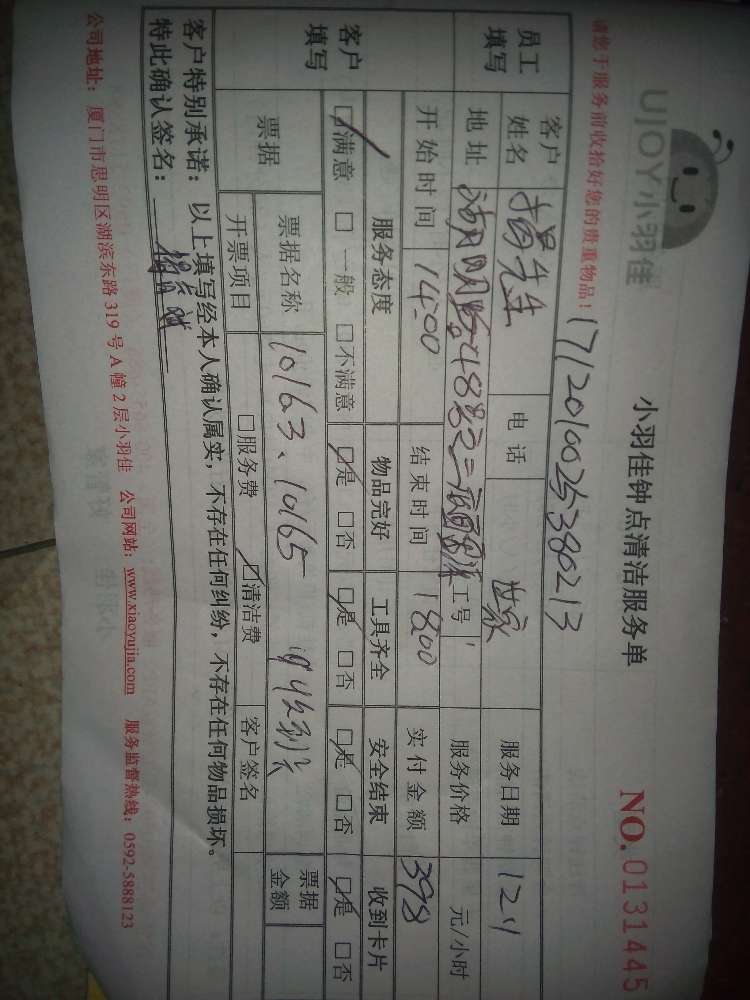 UJOY小羽佳
小羽佳钟点清洁服务单
NO. 0131445
请您于服务前收拾好您的贵重物品!
1712010025380213
员工填写
客户姓名 先生 电话 服务日期 12.1
地址 湖明路 483 工号 服务价格 元/小时
开始时间 14:00 结束时间 1800 实付金额 398
客户填写
服务态度 物品完好 工具齐全 安全结束 收到卡片
☑满意 □一般 □不满意 ☑是 □否 ☑是 □否 ☑是 □否 ☑是 □否
票据 票据名称 10163、10165 票据金额
开票项目 □服务费 ☑清洁费 客户签名
客户特别承诺:以上填写经本人确认属实,不存在任何纠纷,不存在任何物品损坏。
特此确认签名:
公司地址:厦门市思明区湖滨东路319号A幢2层小羽佳 公司网站:www.xiaoyujia.com 服务监督热线:0592-5888123